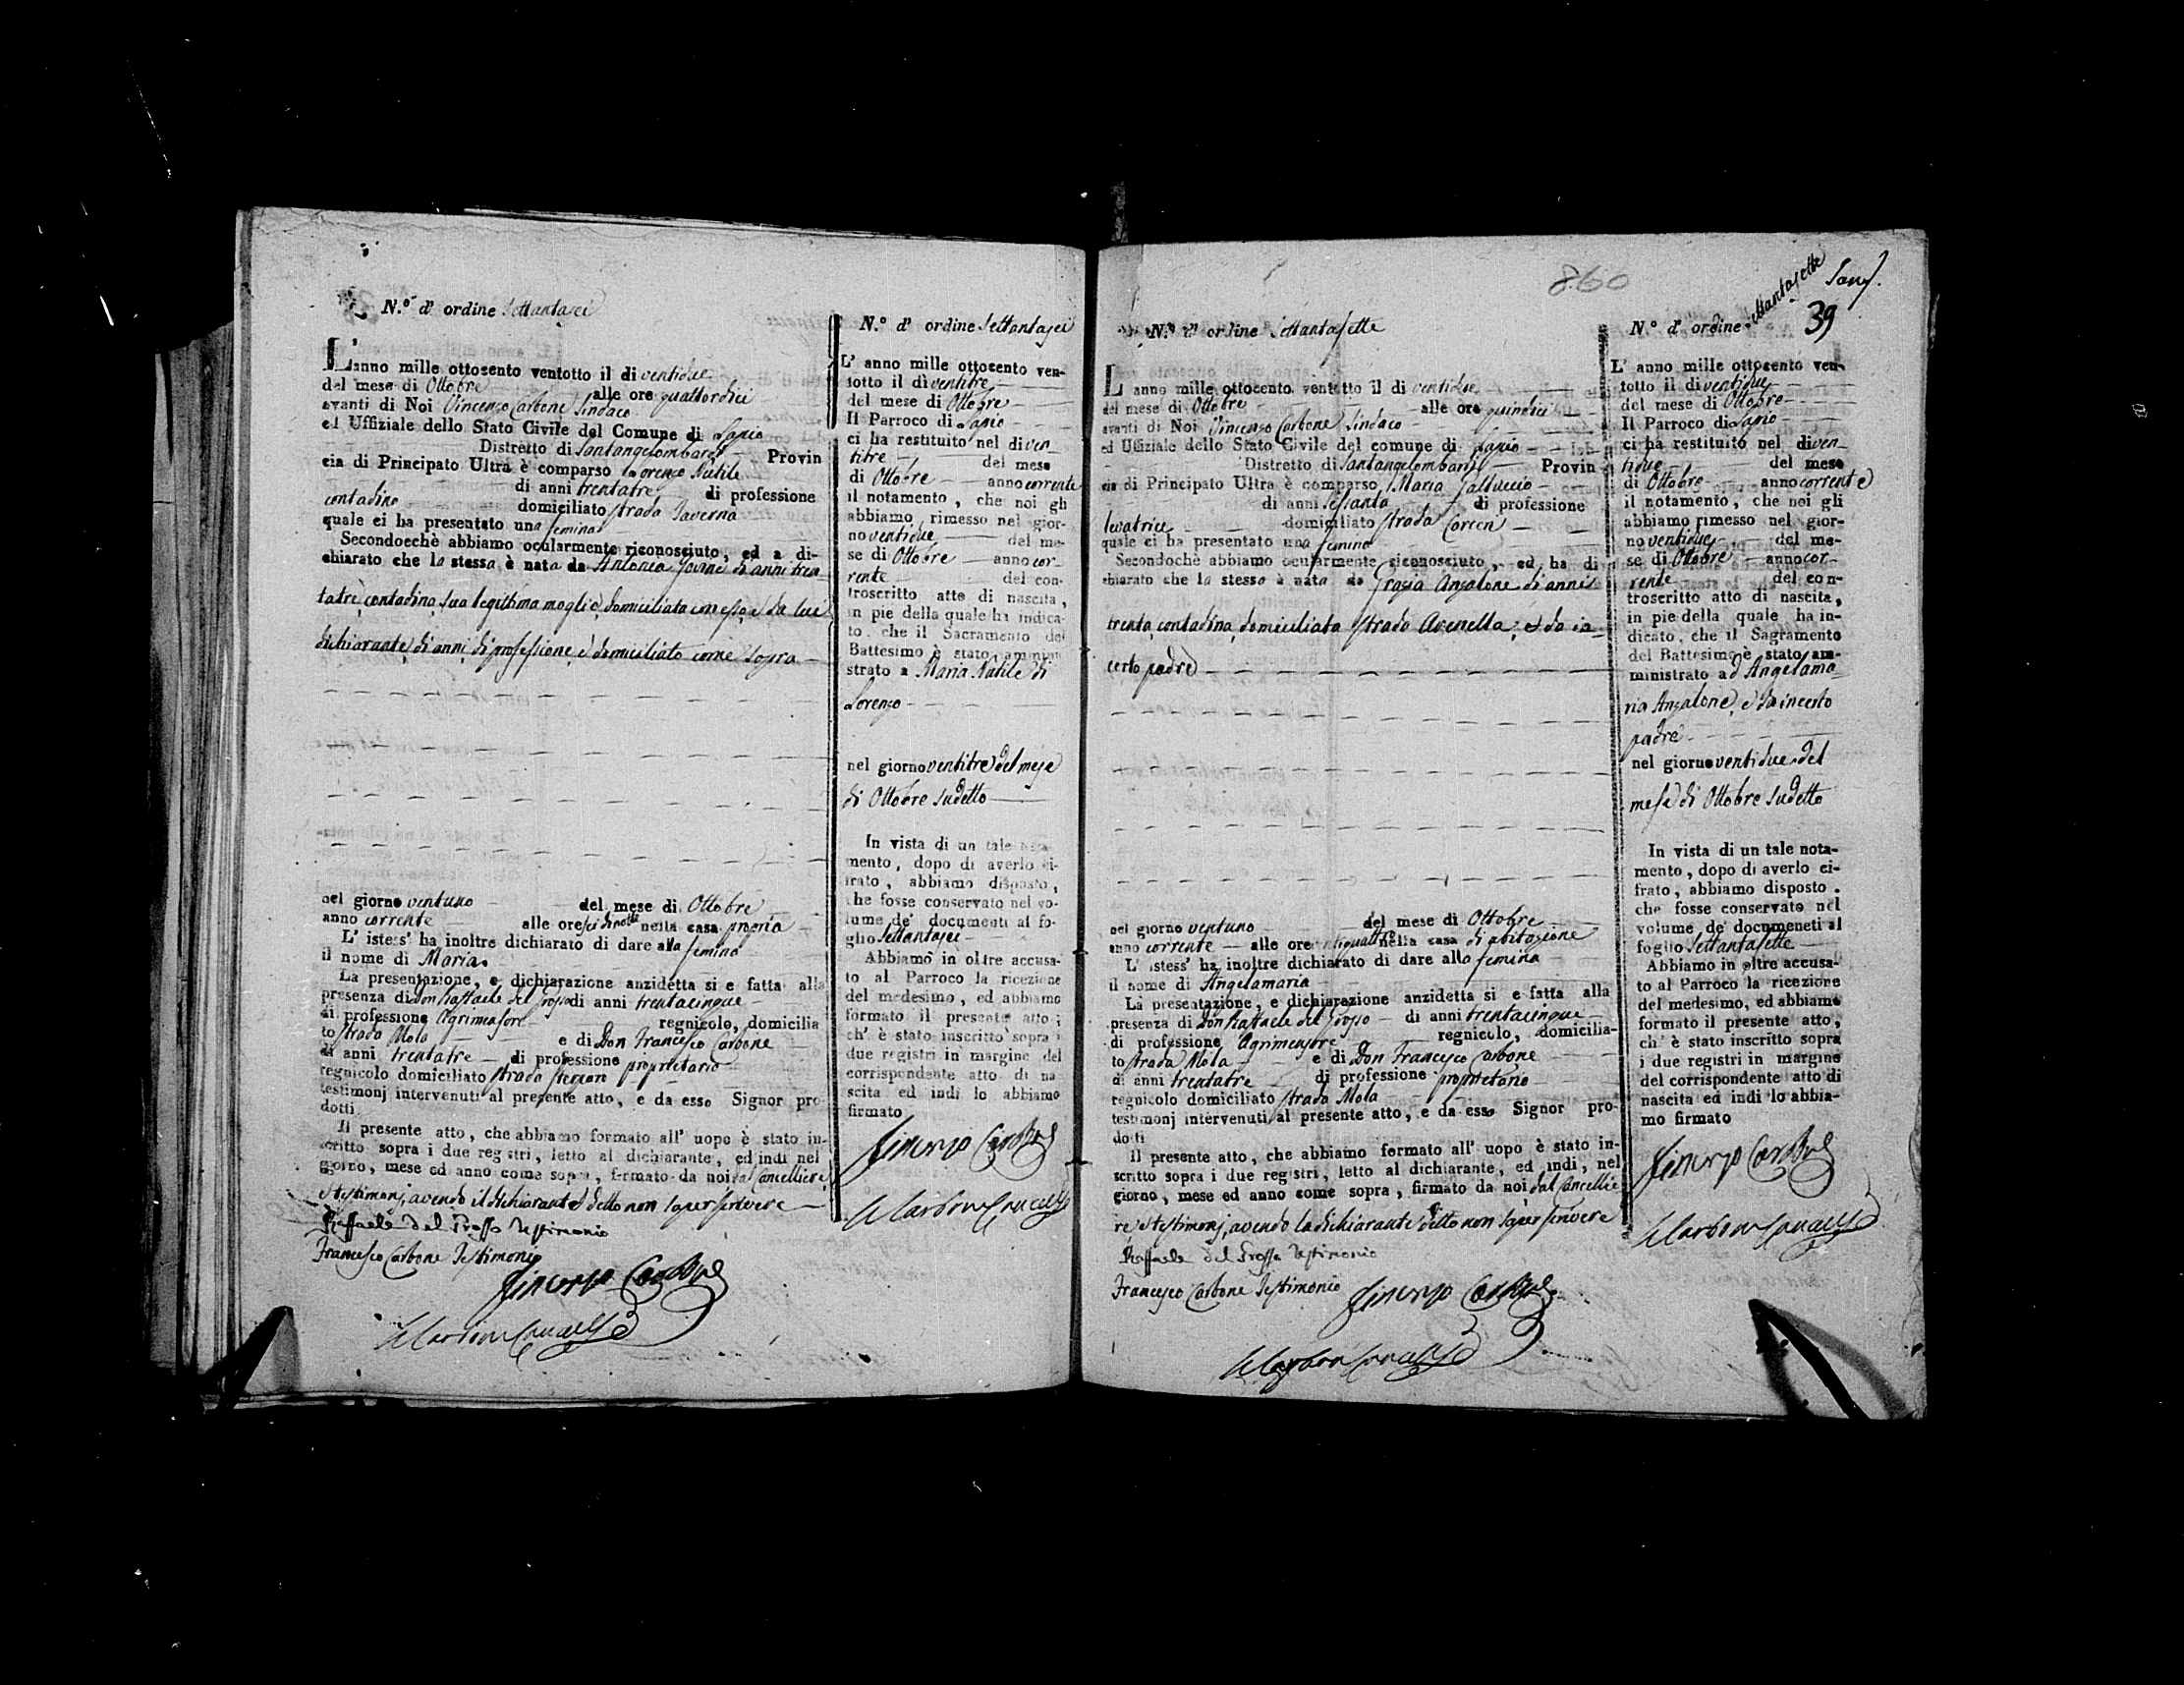 N.° d' ordine Settantasei
L'anno mille ottocento ventotto il di ventidue
del mese di Ottobre alle ore quattordici
avanti di Noi Vincenzo Carbone Sindaco
ed Uffiziale dello Stato Civile del Comune di Lapio
Distretto di Santangelombardi Provin
cia di Principato Ultra è comparso Lorenzo Nutile
di anni trentatre di professione
contadino domiciliato strada Taverna
quale ci ha presentato una femina
Secondochè abbiamo ocularmente riconosciuto, ed a di-
chiarato che la stessa è nata da Antonia Jovine di anni tren
tatrè, contadina, sua legittima moglie, domiciliata con esso, e da lui
dichiarante, di anni, di professione, e domiciliato come sopra
nel giorno ventuno del mese di Ottobre
anno corrente alle ore sei di notte nella casa propria
L' istess' ha inoltre dichiarato di dare alla femina
il nome di Maria.
La presentazione, e dichiarazione anzidetta si e fatta alla
presenza di Don Raffaele del Grosso di anni trentacinque
di professione Agrimensore regnicolo, domicilia
to strada Mola e di Don Francesco Carbone
di anni trentatre di professione proprietario
regnicolo domiciliato strada
testimonj intervenuti al presente atto, e da esso Signor pro-
dotti
Il presente atto, che abbiamo formato all' uopo è stato in-
scritto sopra i due registri, letto al dichiarante, ed indi nel
giorno, mese ed anno come sopra, firmato da noi, dal Cancelliere,
e testimonj, avendo il dichiarante detto non saper scrivere
Raffaele del Grosso Testimonio
Francesco Carbone Testimonio
Vincenzo Carbone
N.° d' ordine Settantasei
L' anno mille ottocento ven-
totto il dì ventitre
del mese di Ottobre
Il Parroco di Lapio
ci ha restituito nel dì ven-
titre del mese
di Ottobre anno corrente
il notamento, che noi gli
abbiamo rimesso nel gior-
no ventidue del me-
se di Ottobre anno cor-
rente del con-
troscritto atto di nascita,
in pie della quale ha indica-
to, che il Sacramento del
Battesimo è stato ammini
strato a Maria Nutile di
Lorenzo
nel giorno ventitre del mese
di Ottobre sudetto
In vista di un tale nota-
mento, dopo di averlo ci-
frato, abbiamo disposto,
che fosse conservato nel vo-
lume de' documenti al fo-
glio Settantasei
Abbiamo in oltre accusa-
to al Parroco la ricezione
del medesimo, ed abbiamo
formato il presente atto;
ch' è stato inscritto sopra i
due registri in margine del
corrispondente atto di na
scita ed indi lo abbiamo
firmato
Vincenzo Carbone
860
39
N.° d' ordine Settantasette
L'anno mille ottocento ventotto il di ventidue
del mese di Ottobre alle ore quindici
avanti di Noi Vincenzo Carbone Sindaco
ed Uffiziale dello Stato Civile del comune di Lapio
Distretto di Santangelombardi Provin
cia di Principato Ultra è comparso Maria Galluccio
di anni sessanta di professione
levatrice domiciliato strada
quale ci ha presentato una femina
Secondochè abbiamo ocularmente riconosciuto, ed ha di
chiarato che la stessa è nata da Grazia Anzalone di anni
trenta, contadina, domiciliata strada Avenella, e da in
certo padre
nel giorno ventuno del mese di Ottobre
anno corrente alle ore ventiquattro nella casa di abitazione
L' istess' ha inoltre dichiarato di dare alla femina
il nome di Angelamaria
La presentazione, e dichiarazione anzidetta si e fatta alla
presenza di Don Raffaele del Grosso di anni trentacinque
di professione Agrimensore regnicolo, domicilia-
to strada Mola e di Don Francesco Carbone
di anni trentatre di professione proprietario
regnicolo domiciliato strada Mola
testimonj intervenuti al presente atto, e da esso Signor pro-
dotti
Il presente atto, che abbiamo formato all' uopo è stato in-
scritto sopra i due registri, letto al dichiarante, ed indi, nel
giorno, mese ed anno come sopra, firmato da noi, dal Cancellie
re, e testimonj, avendo la dichiarante detto non saper scrivere
Raffaele del Grosso Testimonio
Francesco Carbone Testimonio Vincenzo Carbone
N.° d' ordine Settantasette
L' anno mille ottocento ven-
totto il di ventidue
del mese di Ottobre
Il Parroco di Lapio
ci ha restituito nel dì ven-
tidue del mese
di Ottobre anno corrente
il notamento, che noi gli
abbiamo rimesso nel gior-
no ventidue del me-
se di Ottobre anno cor-
rente del con-
troscritto atto di nascita,
in pie della quale ha in-
dicato, che il Sagramento
del Battesimo è stato am-
ministrato ad Angelama-
ria Anzalone, e da incerto
padre
nel giorno ventidue del
mese di Ottobre sudetto
In vista di un tale nota-
mento, dopo di averlo ci-
frato, abbiamo disposto.
che fosse conservato nel
volume de' documeneti al
foglio Settantasette
Abbiamo in oltre accusa-
to al Parroco la ricezione
del medesimo, ed abbiamo
formato il presente atto,
ch' è stato inscritto sopra
i due registri in margine
del corrispondente atto di
nascita ed indi lo abbia-
mo firmato
Vincenzo Carbone